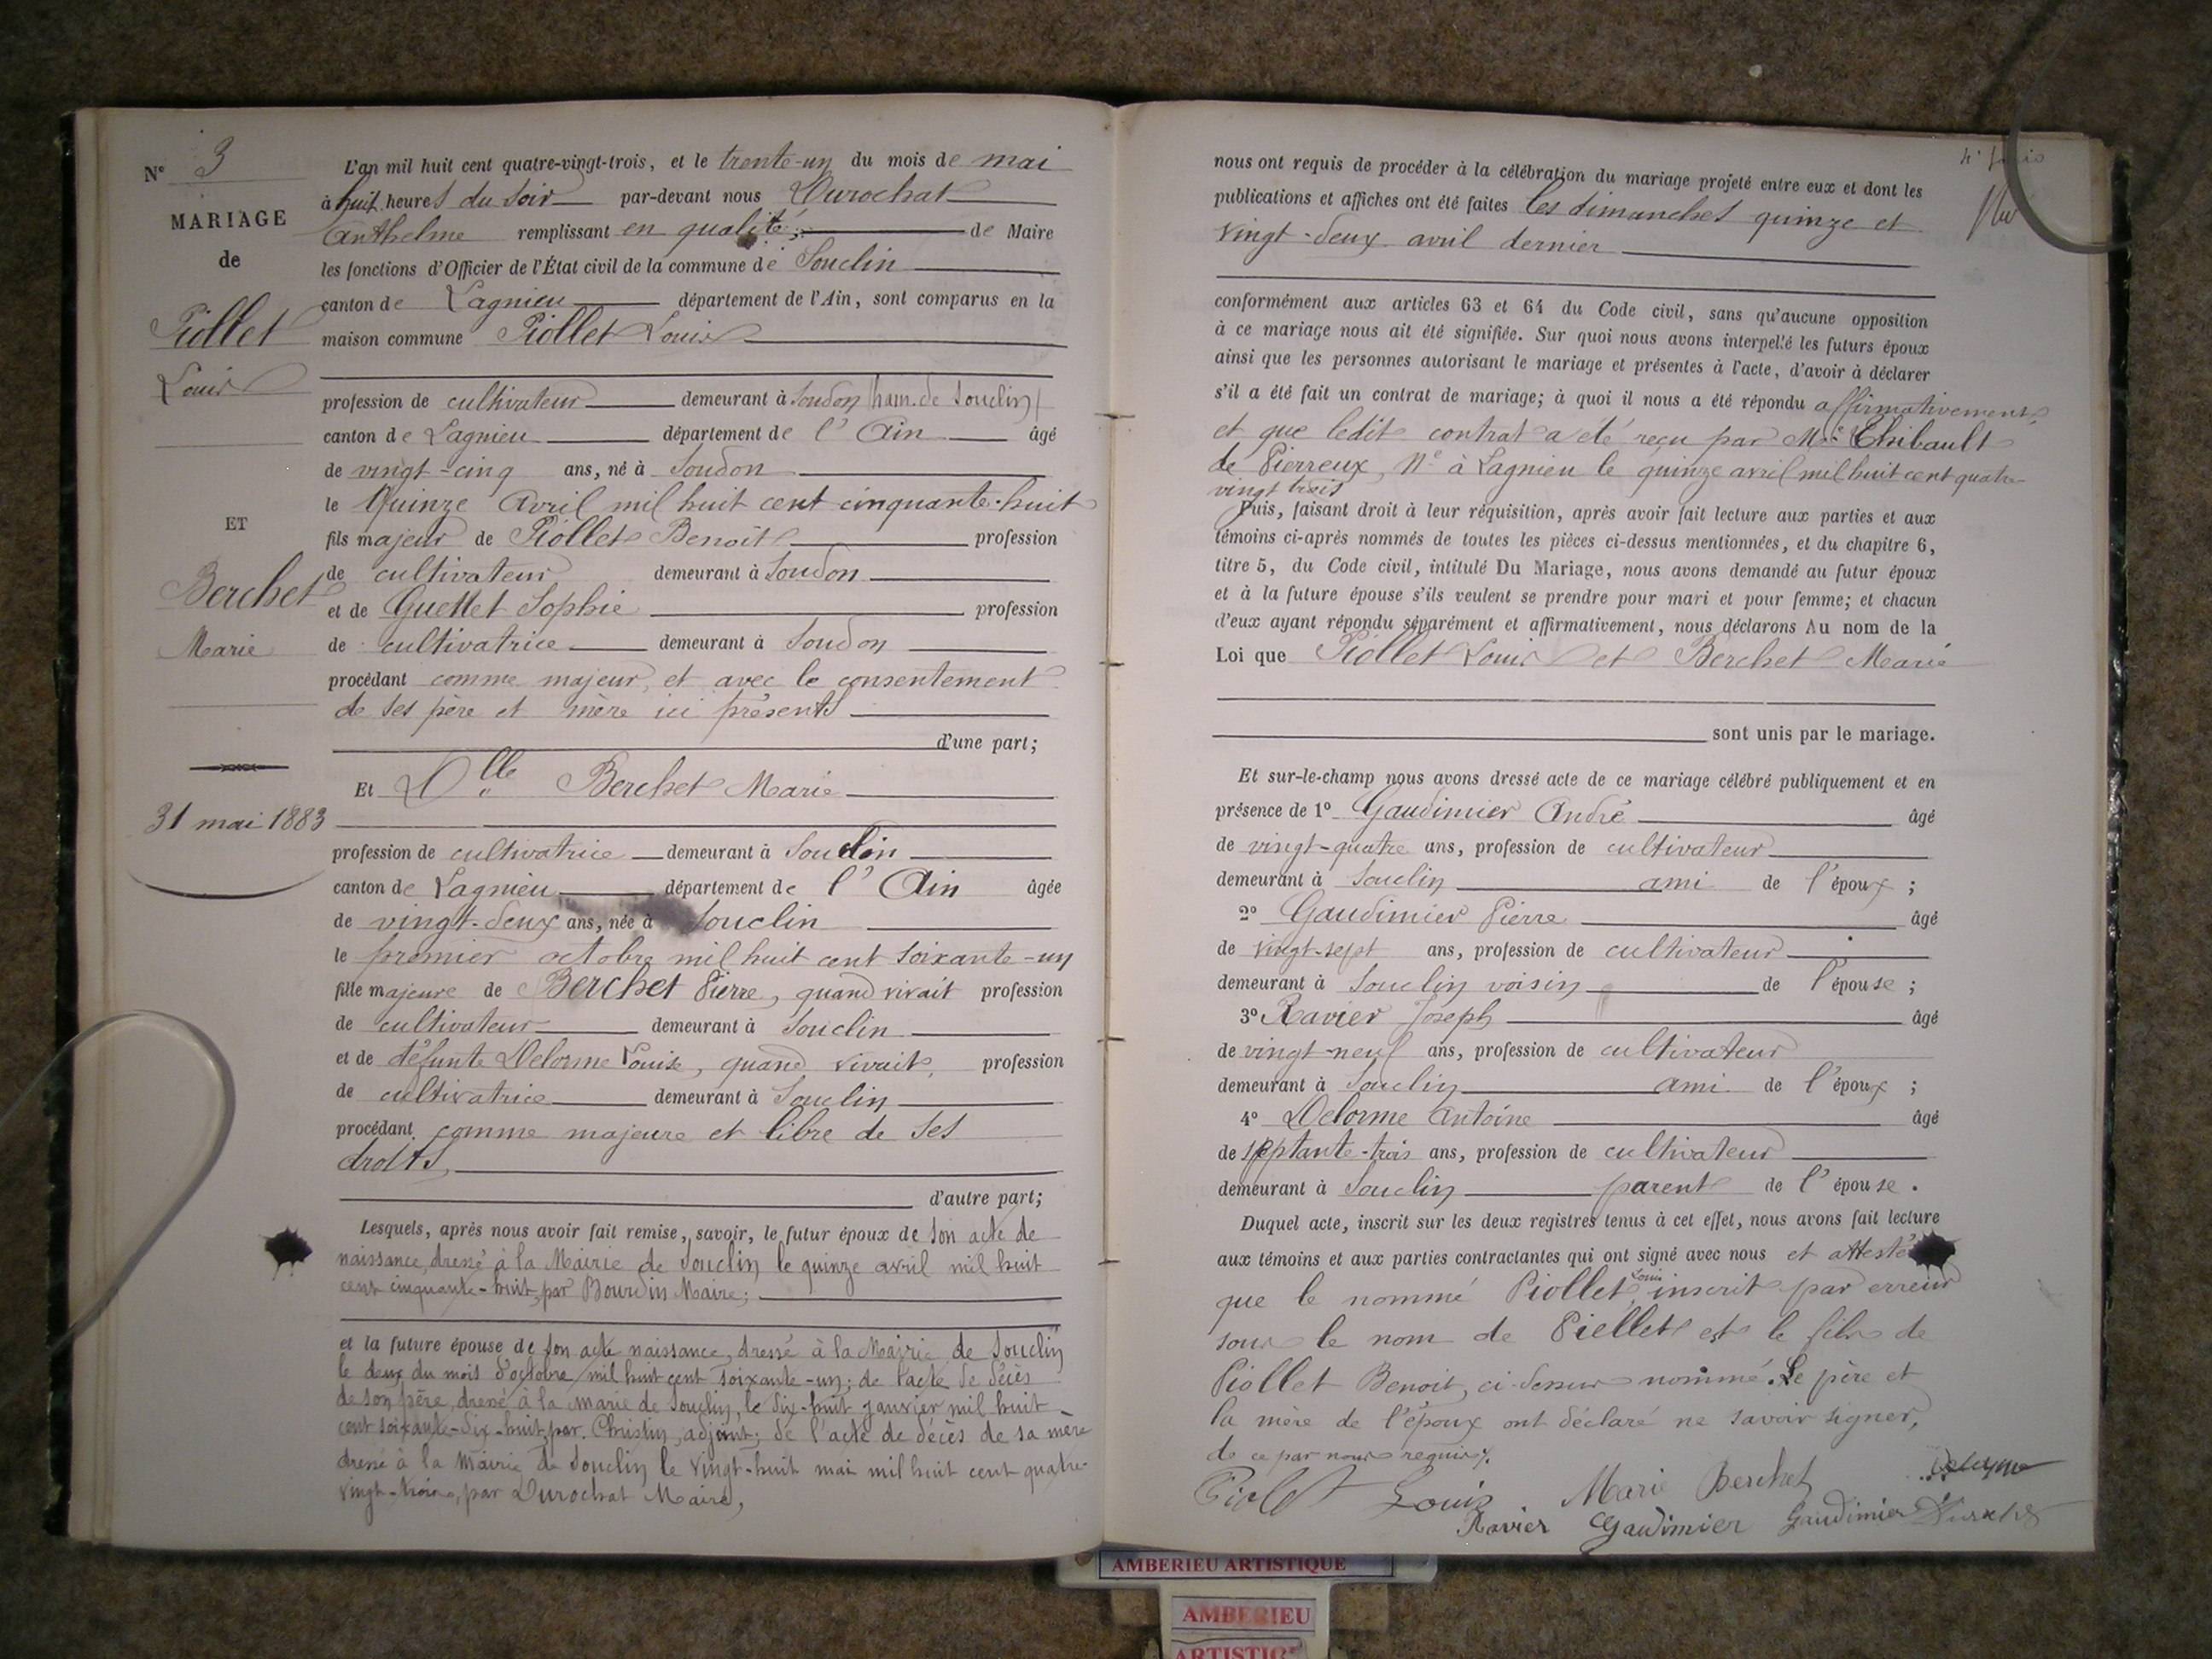 N° 3
MARIAGE
de
Piollet
Louis
ET
Berchet
Marie
31 mai 1883
L'an mil huit cent quatre-vingt-trois, et le trente-un du mois de mai
à huit heures du soir par-devant nous Durochat
Anthelme remplissant en qualité de Maire
les fonctions d'Officier de l'État civil de la commune de Souclin
canton de Lagnieu département de l'Ain, sont comparus en la
maison commune Piollet Louis
profession de cultivateur demeurant à Soudon (ham. de Souclin)
canton de Lagnieu département de l'Ain âgé
de vingt-cinq ans, né à Soudon
le Quinze Avril mil huit cent cinquante-huit
fils majeur de Piollet Benoît profession
de cultivateur demeurant à Soudon
et de Guettet Sophie profession
de cultivatrice demeurant à Soudon
procédant comme majeur, et avec le consentement
de ses père et mère ici présents
d'une part;
Et Dlle Berchet Marie
profession de cultivatrice demeurant à Souclin
canton de Lagnieu département de l'Ain âgée
de vingt-deux ans, née à Souclin
le premier octobre mil huit cent soixante-un
fille majeure de Berchet Pierre, quand vivait profession
de cultivateur demeurant à Souclin
et de défunte Delorme Louise, quand vivait, profession
de cultivatrice demeurant à Souclin
procédant comme majeure et libre de ses
droits,
d'autre part;
Lesquels, après nous avoir fait remise, savoir, le futur époux de son acte de
naissance, dressé à la Mairie de Souclin le quinze avril mil huit
cent cinquante-huit, par Bourdin Maire;
et la future épouse de son acte naissance, dressé à la Mairie de Souclin
le deux du mois d'octobre mil huit cent soixante-un; de l'acte de décès
de son père, dressé à la Mairie de Souclin, le dix-huit janvier mil huit
cent soixante-dix-huit, par Christin, adjoint; de l'acte de décès de sa mère
dressé à la Mairie de Souclin le vingt-huit mai mil huit cent quatre-
vingt-trois, par Durochat Maire,
nous ont requis de procéder à la célébration du mariage projeté entre eux et dont les
publications et affiches ont été faites les dimanches quinze et
vingt-deux avril dernier
conformément aux articles 63 et 64 du Code civil, sans qu'aucune opposition
à ce mariage nous ait été signifiée. Sur quoi nous avons interpellé les futurs époux
ainsi que les personnes autorisant le mariage et présentes à l'acte, d'avoir à déclarer
s'il a été fait un contrat de mariage; à quoi il nous a été répondu affirmativement,
et que ledit contrat a été reçu par Me Thibault
de Pierreux, Ne à Lagnieu le quinze avril mil huit cent quatre-
vingt trois
Puis, faisant droit à leur réquisition, après avoir fait lecture aux parties et aux
témoins ci-après nommés de toutes les pièces ci-dessus mentionnées, et du chapitre 6,
titre 5, du Code civil, intitulé Du Mariage, nous avons demandé au futur époux
et à la future épouse s'ils veulent se prendre pour mari et pour femme; et chacun
d'eux ayant répondu séparément et affirmativement, nous déclarons Au nom de la
Loi que Piollet Louis et Berchet Marie
sont unis par le mariage.
Et sur-le-champ nous avons dressé acte de ce mariage célébré publiquement et en
présence de 1° Gaudimier André âgé
de vingt-quatre ans, profession de cultivateur
demeurant à Souclin ami de l'époux;
2° Gaudimier Pierre âgé
de vingt-sept ans, profession de cultivateur
demeurant à Souclin voisin de l'épouse;
3° Ravier Joseph âgé
de vingt-neuf ans, profession de cultivateur
demeurant à Souclin ami de l'époux;
4° Delorme Antoine âgé
de septante-trois ans, profession de cultivateur
demeurant à Souclin parent de l'épouse.
Duquel acte, inscrit sur les deux registres tenus à cet effet, nous avons fait lecture
aux témoins et aux parties contractantes qui ont signé avec nous et attesté
que le nommé Piollet Louis inscrit par erreur
sous le nom de Piellet est le fils de
Piollet Benoit, ci-dessus nommé. Le père et
la mère de l'époux ont déclaré ne savoir signer,
de ce par nous requis.
Piolet Louis Marie Berchet
Ravier Gaudimier Gaudimier
AMBERIEU ARTISTIQUE
AMBERIEU
ARTISTIQUE